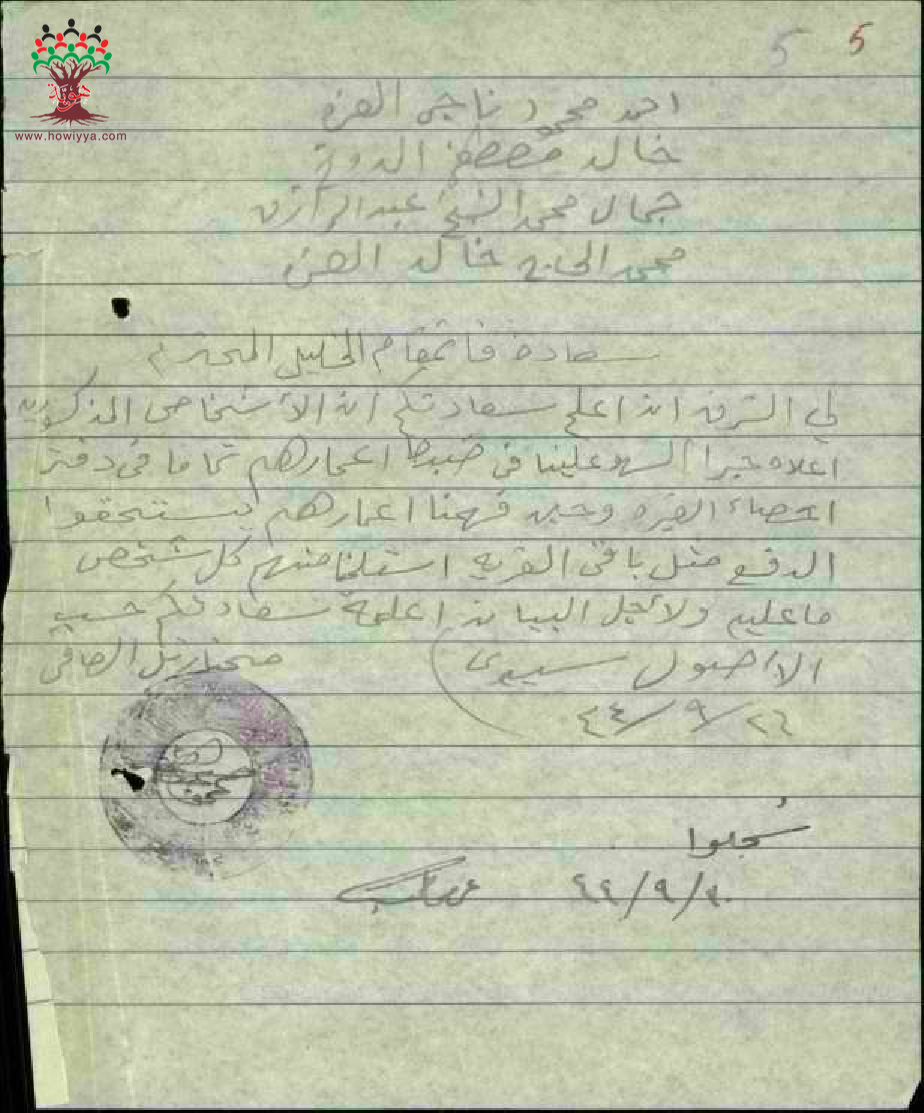 5 5
هوية
www.howiyya.com
احمد محمود ناجي العزه
خالد مصطفى
جمال محمد الشيخ عبد الرازق
محمد الحاج خالد العزه
سعادة قائمقام الخليل المحترم
لي الشرف ان اعلم سعادتكم ان الاشخاص المذكورين
اعلاه جرا السهو علينا في ضبط اعمارهم تماما في دفتر
احصاء القريه وحين فهمنا اعمارهم يستحقوا
الدفع مثل باقي القريه استلمنا منهم كل شخص
ما عليه ولاجل البيان اعلمة سعادتكم حسب
الاصول سيدي
مختار تل الصافي
٢٤/٩/٤٤
سجلوا